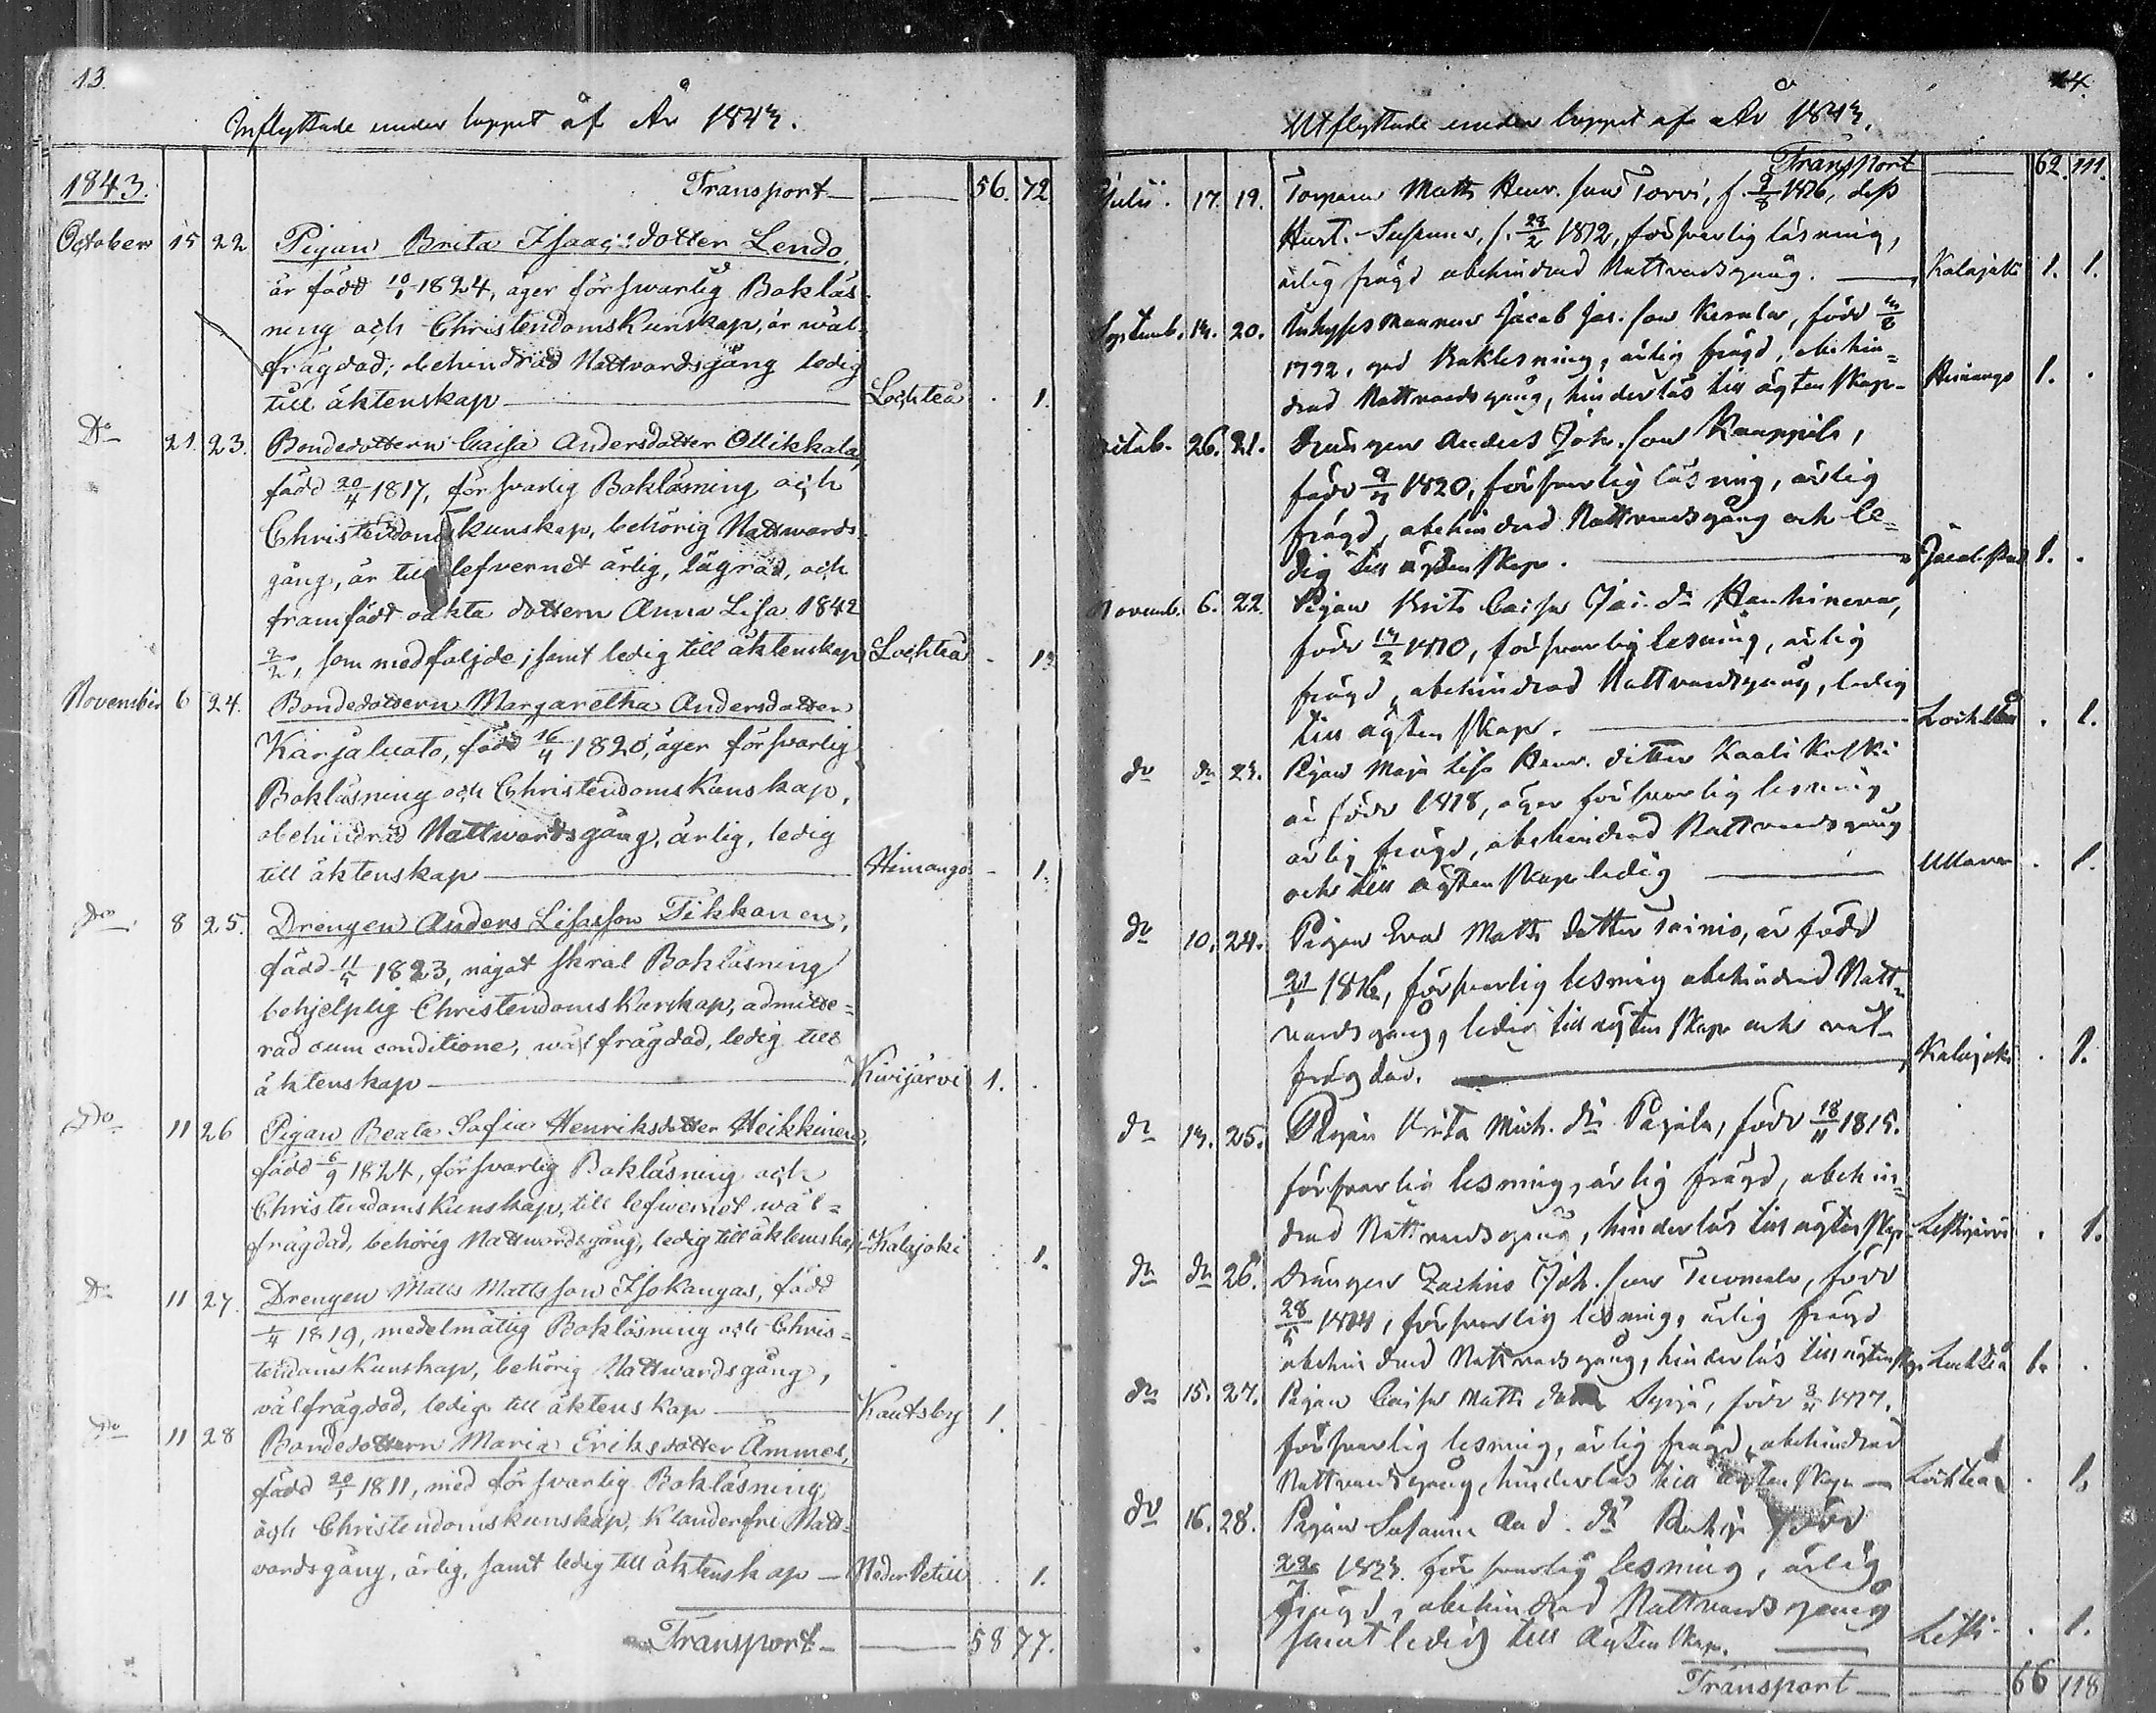 13.
Inflyttade under loppet af År 1843.
1843. Transport — 56. 72
October 15 22 Pigan Brita Isaacsdotter Lendo,
är född 10/1 1824, äger försvarlig Bokläs-
ning och Christendoms Kunskap, är wäl-
frägdad; obehindrad Nattvardsgång ledig
till äktenskap — Lochteå . 1.
Do 21. 23. Bondedottern Caisa Andersdotter Ollikkala,
född 20/4 1817, försvarlig Bokläsning och
Christendomskunskap, behörig Nattwards-
gång, är till lefvernet ärlig, lägrad, och
framfödt oäkta dottern Anna Lisa 1842
2/2, som medföljde; samt ledig till äktenskap Lochteå -
November 6 24. Bondedottern Margaretha Andersdotter
Karjaluoto, född 16/4 1820, äger försvarlig
Bokläsning och Christendoms Kunskap,
obehindrad Nattwardsgång, ärlig, ledig
till äktenskap — Himango - 1.
Do 8 25. Drengen Anders Lisasson Tikkanen,
född 11/5 1823, något skral Bokläsning
behjelplig Christendoms Kunskap, admitte-
rad cum conditione, wälfrägdad, ledig till
äktenskap — Kivijärvi 1. .
Do 11 26 Pigan Beata Sofia Henriksdotter Heikkinen,
född 6/9 1824, försvarlig Bokläsning och
Christendoms Kunskap, till lefwernet wäl-
frägdad, behörig Nattwardsgång, ledig till äktenskap Kalajoki . 1.
Do 11 27. Drengen Matts Mattsson Isokangas, född
1/4 1819, medelmåttig Bokläsning och Chris-
tendoms Kunskap, behörig Nattwardsgång,
välfrägdad, ledig till äktenskap — Kantsby 1.
Do 11 28 Bondedottern Maria Eriksdotter Ämmes,
född 20/1 1811, med försvarlig Bokläsning
och Christendomskunskap, Klanderfri Natt-
vardsgång, ärlig, samt ledig till äktenskap — Neder Vetill . 1.
Transport — 58 77.
14.
Utflyttade under loppet af År 1843.
Transport — 62. 111.
Julii. 17. 19. Torparen Matts Henr. son Torvi, f. 9/8 1816, dess
Hust. Susanna, f. 28/2 1812, försvarlig läsning,
ärlig frägd obehindrad Nattvardsgång. — Kalajoki 1. 1.
Septemb. 14. 20. Inhyses mannen Jacob Jac. son född
1792, god Boklesning, ärlig frägd, obehin-
drad Nattvardsgång, hinderlös till ägtenskap — Himango 1. .
26. 21. Drängen Anders Joh. son Kauppila,
född 1820, försvarlig läsning, ärlig
frägd, obehindrad Nattvardsgång och le-
dig till ägtenskap. — Jacobstad 1. .
Novemb. 6. 22. Pigan Brita Caisa Jac. dr Hanhineva,
född 1810, försvarlig lesning, ärlig
frägd, obehindrad Nattvardsgång, ledig
till ägtenskap. — Lochteå . 1.
do do 23. Pigan Maja Lisa Henr. dotter Kaali Koski
är född 1818, äger försvarlig lesning
ärlig frägd, obehindrad Nattvardsgång
och till ägtenskap ledig — Ullava . 1.
do 10. 24. Pigan Eva Matts dotter Sainio, är född
21/1 1816, försvarlig lesning obehindrad Natt-
vardsgång, ledig till ägtenskap och väl-
frägdad. — Kalajoki . 1.
do 14. 25. Pigan Brita Mich. dr Pajala, född 18/11 1815.
försvarlig lesning, ärlig frägd, obehin-
drad Nattvardsgång, hinderlös till ägtenskap. Lestijärvi . 1.
do do 26. Drängen Zachris Joh. son Tuomala, född
28/5 försvarlig lesning, ärlig frägd
obehindrad Nattvardsgång, hinderlös till ägtenskap. Lochteå 1. .
do 15. 27. Pigan Caisa Matts född
försvarlig lesning, ärlig frägd, obehindrad
Nattvardsgång, hinderlös till ägtenskap — Lochteå . 1.
do 16. 28. Pigan Susanna And. dr född
1823. försvarlig lesning, ärlig
frägd, obehindrad Nattvardsgång
samt ledig till ägtenskap. — Lesti. . 1.
Transport — 66 118